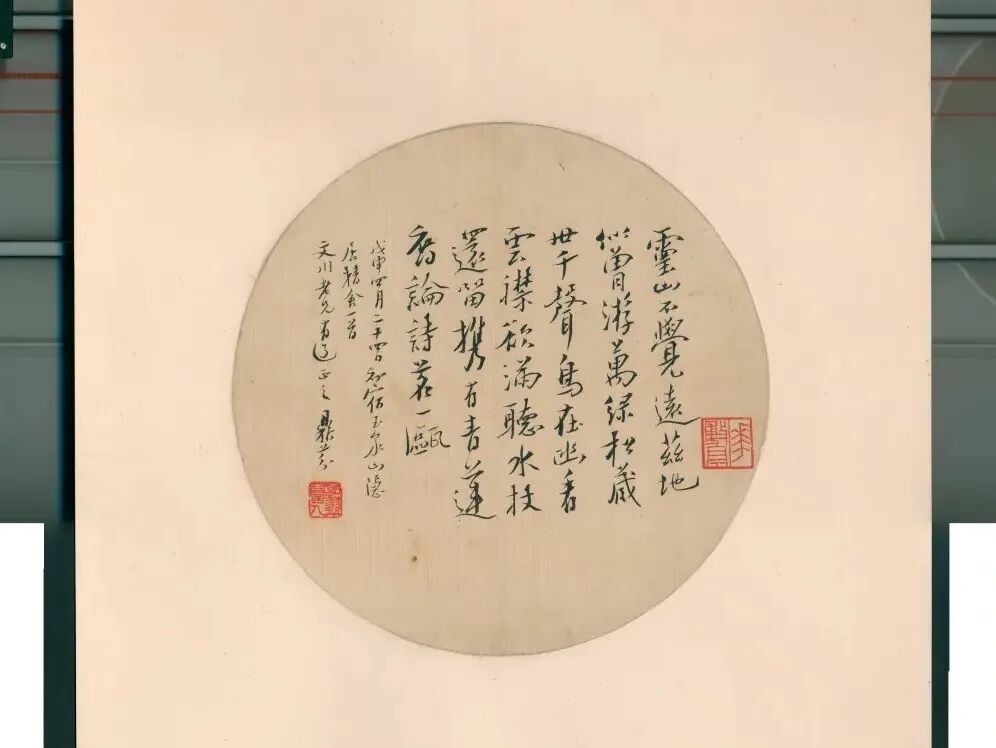 靈山不覺遠茲地
似曾游萬綠松藏
世千聲鳥在幽看
雲襟欲滿聽水杖
還留携有青蓮
裔論詩茗一甌
戊申四月二十四日宿玉泉山隱
居精舍一首
文川老兄有道正之 鼎芬